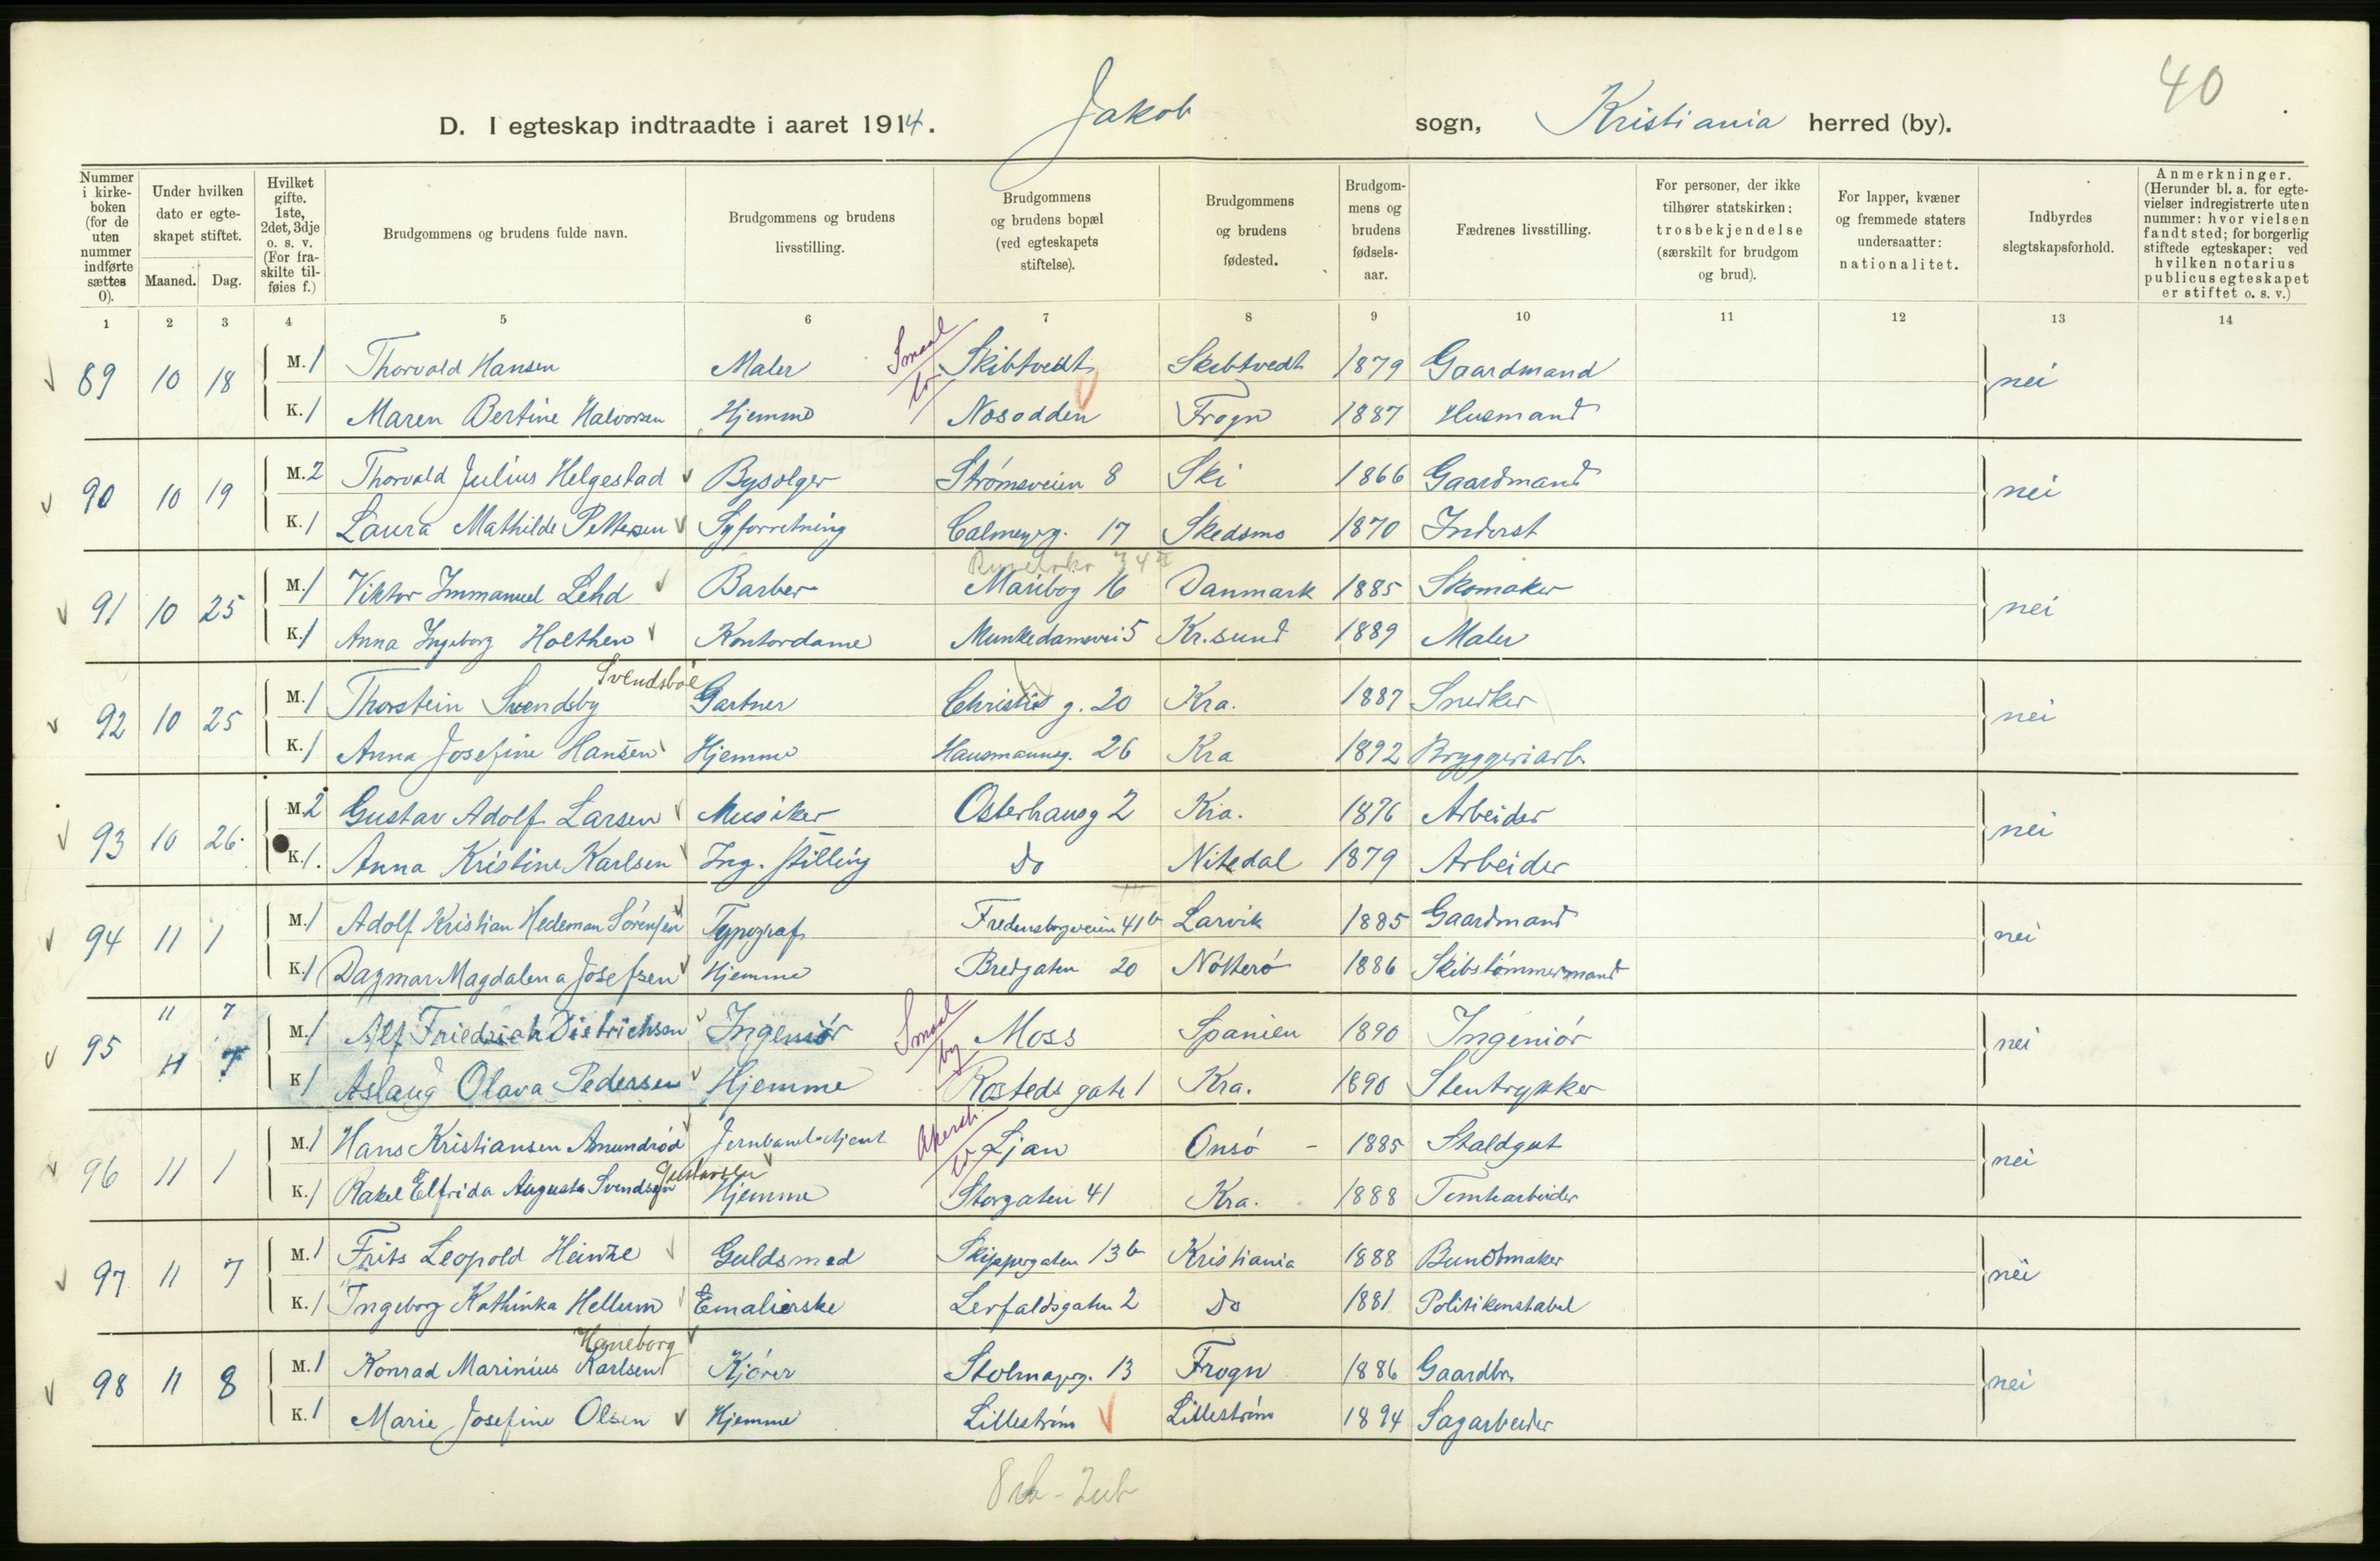 40
D. I egteskap indtraadte i aaret 1914. Jakob sogn, Kristiania herred (by).
Nummer i kirke-boken (for de uten nummer indførte sættes 0).
Under hvilken dato er egte-skapet stiftet.
Maaned. Dag.
Hvilket gifte. 1ste, 2det, 3dje o. s. v. (For fra-skilte til-føies f.)
Brudgommens og brudens fulde navn.
Brudgommens og brudens livsstilling.
Brudgommens og brudens bopæl (ved egteskapets stiftelse).
Brudgommens og brudens fødested.
Brudgom-mens og brudens fødsels-aar.
Fædrenes livsstilling.
For personer, der ikke tilhører statskirken: trosbekjendelse (særskilt for brudgom og brud).
For lapper, kvæner og fremmede staters undersaatter: nationalitet.
Indbyrdes slegtskapsforhold.
Anmerkninger. (Herunder bl. a. for egte-vielser indregistrerte uten nummer: hvor vielsen fandt sted; for borgerlig stiftede egteskaper: ved hvilken notarius publicus egteskapet er stiftet o. s. v.)
1 2 3 4 5 6 7 8 9 10 11 12 13 14
89 10 18 M. 1 Thorvald Hansen Maler Smaal Skibtvedt Skibtvedt 1879 Gaardmand nei
K. 1 Maren Bertine Halvorsen Hjemme Nesodden Frogn 1887 Husmand
90 10 19 M. 2 Thorvald Julius Helgestad Bysælger Strømsveien 8 Ski 1866 Gaardmand nei
K. 1 Laura Mathilde Pettersen Syforretning Calmeyrg. 17 Skedsmo 1870 Inderst
91 10 25 M. 1 Viktor Immanuel Lehd Barber Maribog 16 Danmark 1885 Skomaker nei
K. 1 Anna Ingeborg Holthen Kontordame Munkedamsvei 5 Kr.sund 1889 Maler
Svendsbøe
92 10 25 M. 1 Thorstein Svendsby Gartner Christies g. 20 Kra. 1887 Snedker nei
K. 1 Anna Josefine Hansen Hjemme Hausmannsg. 26 Kra 1892 Bryggeriarb.
93 10 26 M. 2 Gustav Adolf Larsen Musiker Osterhausg 2 Kra. 1876 Arbeider nei
K. 1. Anna Kristine Karlsen Ing. stilling Do Nitedal 1879 Arbeider
94 11 1 M. 1 Adolf Kristian Hedeman Sörensen Typograf Fredensborgveien 41b Larvik 1885 Gaardmand nei
K. 1 Dagmar Magdalena Josefsen Hjemme Bredgaten 20 Nötterö 1886 Skibstömmermand
95 11 7 M. 1 Alf Friedrich Dietrichson Ingeniör Smaal by Moss Spanien 1890 Ingeniör nei
11 7 K 1 Aslaug Olava Pedersen Hjemme Rosteds gate 1 Kra. 1890 Stentrykker
96 11 1 M. 1 Hans Kristiansen Amundröd Jernbanebetjent Akersh. Ljan Onsö 1885 Staldgut nei
Gustavsen
K. 1 Rakel Elfrida Augusta Svendsen Hjemme Storgaten 41 Kra. 1888 Tomtearbeider
97 11 7 M. 1 Frits Leopold Heinze Guldsmed Skippergaten 13b Kristiania 1888 Buntmaker nei
K. 1 Ingeborg Kathinka Hellum Emalierske Lerfaldsgaten 2 Do 1881 Politikonstabel
Haneborg
98 11 8 M. 1 Konrad Marinius Karlsen Kjörer Stolmagerg. 13 Frogn 1886 Gaardbr. nei
K. 1 Marie Josefine Olsen Hjemme Lilleström Lilleström 1894 Sagarbeider